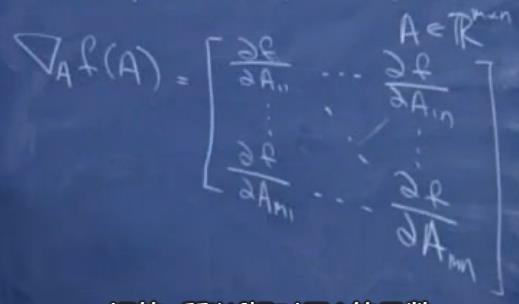 A ∈ ℝ^{m×n}
∇_A f(A) = [ ∂f/∂A_{11} ⋯ ∂f/∂A_{1n}
⋮ ⋱ ⋮
∂f/∂A_{m1} ⋯ ∂f/∂A_{mn} ]